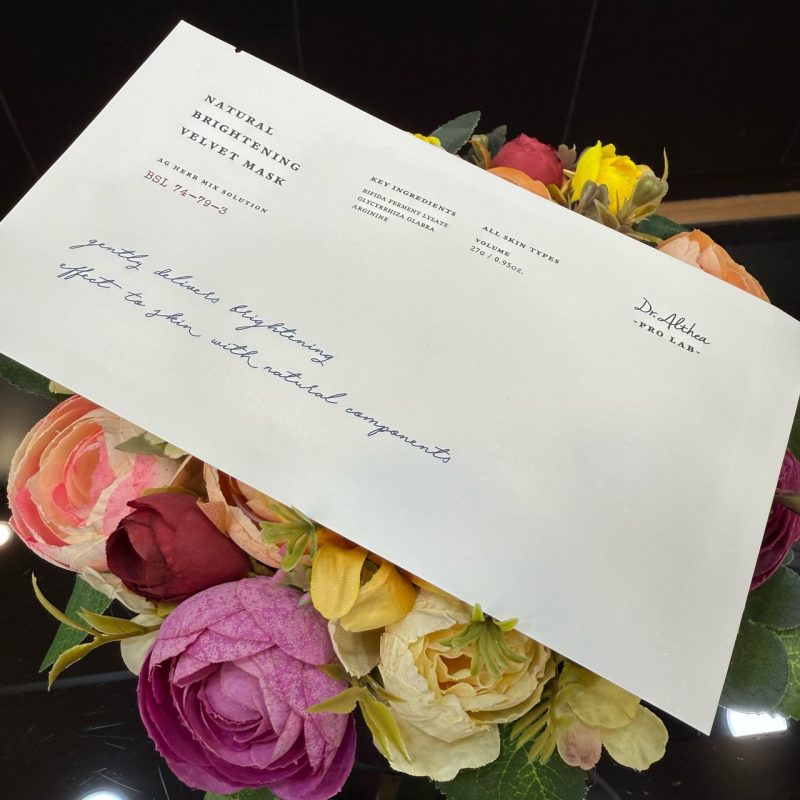 NATURAL
BRIGHTENING
VELVET MASK
AG HERB MIX SOLUTION
BSL 74-79-3
KEY INGREDIENTS
BIFIDA FERMENT LYSATE
GLYCYRRHIZA GLABRA
ARGININE
ALL SKIN TYPES
VOLUME
27G / 0.95OZ.
Dr. Althea
-PRO LAB-
gently delivers brightening
effect to skin with natural components